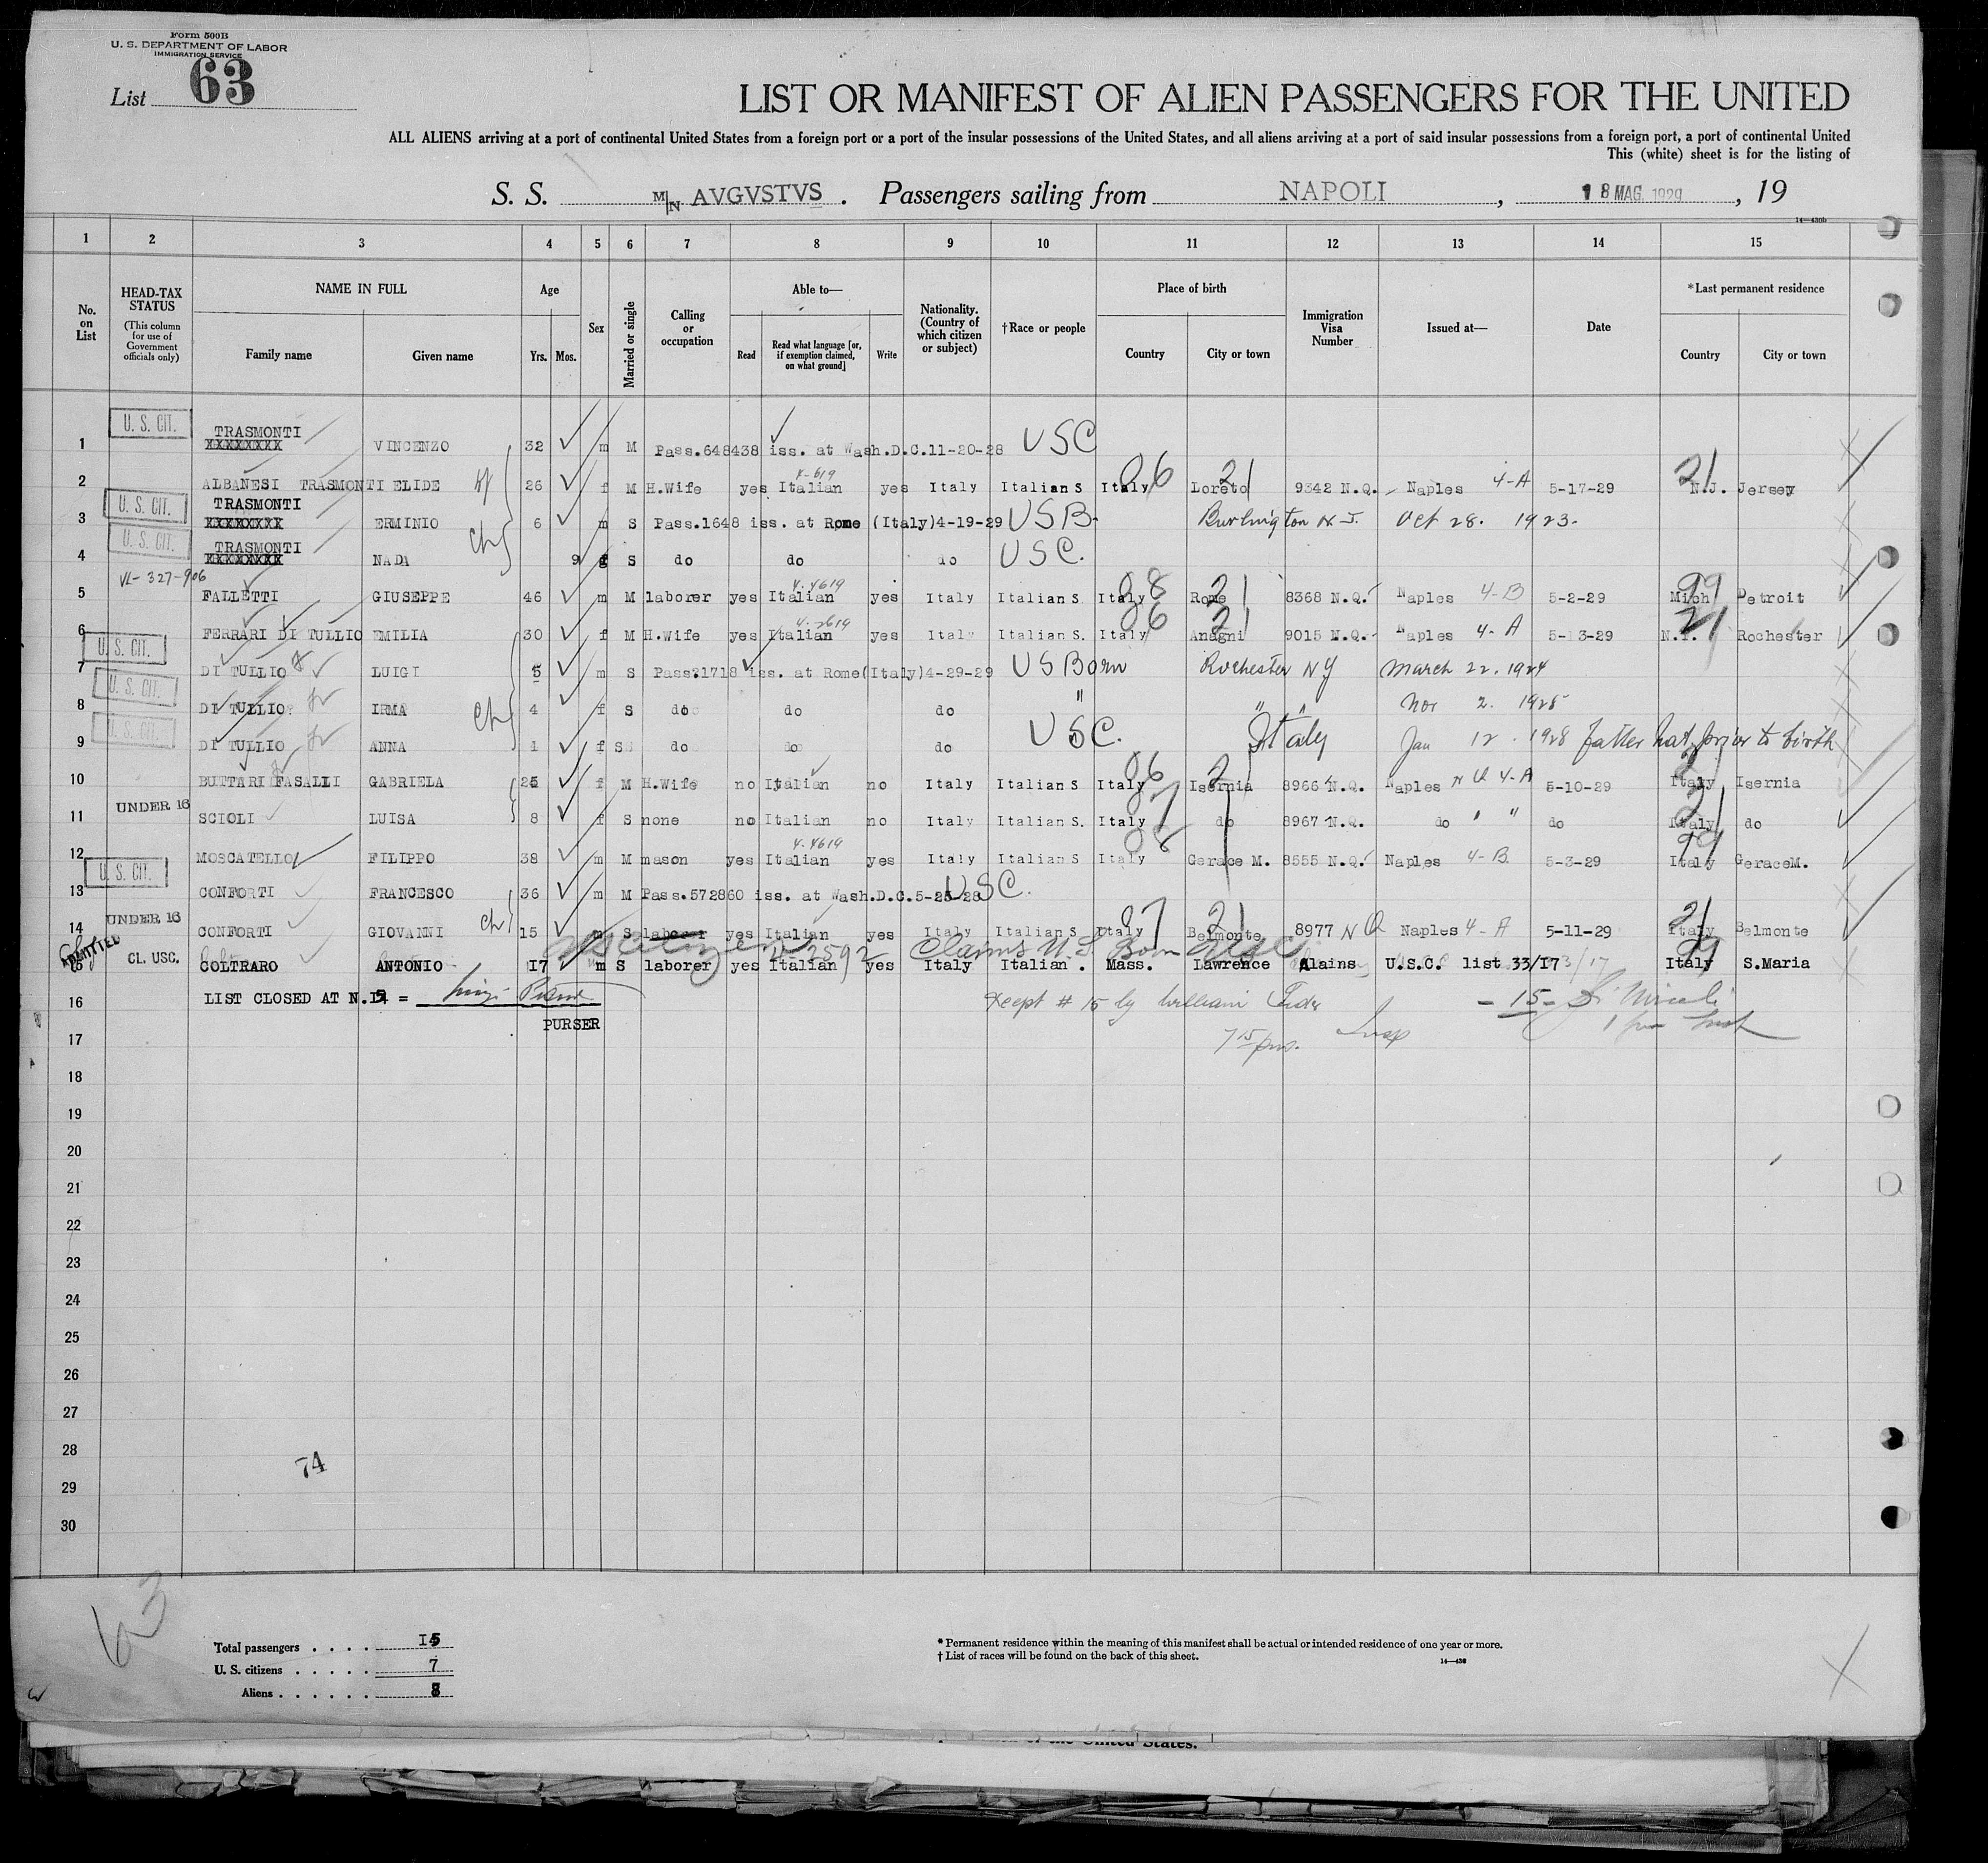 Form 500B
U. S. DEPARTMENT OF LABOR
IMMIGRATION SERVICE
List 63
LIST OR MANIFEST OF ALIEN PASSENGERS FOR THE UNITED
ALL ALIENS arriving at a port of continental United States from a foreign port or a port of the insular possessions of the United States, and all aliens arriving at a port of said insular possessions from a foreign port, a port of continental United
This (white) sheet is for the listing of
S. S. M/N AVGVSTVS. Passengers sailing from NAPOLI, 18 MAG. 1929, 19
14—430b
1 2 3 4 5 6 7 8 9 10 11 12 13 14 15
No. on List
HEAD-TAX STATUS (This column for use of Government officials only)
NAME IN FULL
Family name Given name
Age Yrs. Mos.
Sex
Married or single
Calling or occupation
Able to— Read Read what language [or, if exemption claimed, on what ground] Write
Nationality. (Country of which citizen or subject)
†Race or people
Place of birth Country City or town
Immigration Visa Number
Issued at—
Date
*Last permanent residence Country City or town
1 U. S. CIT. TRASMONTI XXXXXXXX VINCENZO 32 m M Pass.648438 iss. at Wash.D.C.11-20-28 USC
2 ALBANESI TRASMONTI ELIDE 26 f M H.Wife yes Italian yes Italy Italian S Italy 86 Loreto 21 9342 N.Q. Naples 4-A 5-17-29 21 N.J. Jersey
3 U. S. CIT. TRASMONTI XXXXXXXX ERMINIO 6 m S Pass.1648 iss. at Rome (Italy)4-19-29 USB. Burlington N.J. Oct 28. 1923.
4 U. S. CIT. TRASMONTI XXXXXXXX NADA ch 9 f S do do do USC.
5 VL-327-906 FALLETTI GIUSEPPE 46 m M laborer yes Italian 4.4619 yes Italy Italian S Italy 88 Rome 21 8368 N.Q. Naples 4-B 5-2-29 99 Mich Detroit
6 FERRARI DI TULLIO EMILIA 30 f M H.Wife yes Italian 4.2619 yes Italy Italian S. Italy 86 Anagni 21 9015 N.Q. Naples 4-A 5-13-29 21 N.Y. Rochester
7 U. S. CIT. DI TULLIO LUIGI 5 m S Pass.1718 iss. at Rome(Italy)4-29-29 US Born Rochester NY March 22. 1924
8 U. S. CIT. DI TULLIO IRMA ch 4 f S do do do " " " Nov 2. 1925
9 U. S. CIT. DI TULLIO ANNA 1 f S do do do USC. Italy Jan 12. 1928 father nat. prior to birth
10 BUTTARI FASALLI GABRIELA 25 f M H.Wife no Italian no Italy Italian S Italy 86 Isernia 21 8966 N.Q. Naples NQ 4-A 5-10-29 Italy Isernia
11 UNDER 16 SCIOLI LUISA 8 f S none no Italian no Italy Italian S. Italy 87 do 8967 N.Q. do " " do 21 Italy do
12 MOSCATELLO FILIPPO 38 m M mason yes Italian 4.4619 yes Italy Italian S Italy 88 Gerace M. 8555 N.Q. Naples 4-B 5-3-29 99 Italy GeraceM.
13 U. S. CIT. CONFORTI FRANCESCO 36 m M Pass.572860 iss. at Wash.D.C.5-25-28 USC.
14 UNDER 16 CONFORTI GIOVANNI ch 15 m S laborer yes Italian yes Italy Italian S Italy 87 Belmonte 21 8977 NQ Naples 4-A 5-11-29 21 Italy Belmonte
US Citizen Claims U.S. Born
15 ADMITTED CL. USC. COLTRARO ANTONIO 17 m S laborer yes Italian yes Italy Italian. Mass. Lawrence Claims U.S.C. list 33/17 99 Italy S.Maria
16 LIST CLOSED AT N.15 = except # 15 by William
PURSER
17 7 15 pm. Insp
18
19
20
21
22
23
24
25
26
27
28
29
30
74
63
Total passengers 15
U. S. citizens 7
Aliens 8
* Permanent residence within the meaning of this manifest shall be actual or intended residence of one year or more.
† List of races will be found on the back of this sheet.
14—430
of the United States.